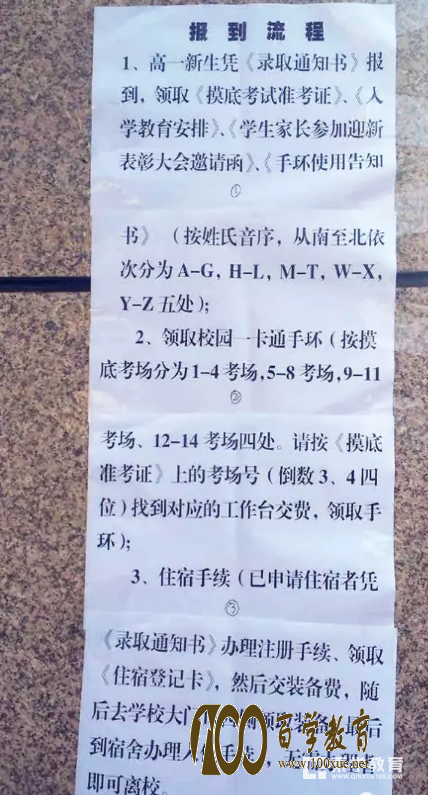 报到流程
1、高一新生凭《录取通知书》报
到，领取《摸底考试准考证》、《入
学教育安排》、《学生家长参加迎新
表彰大会邀请函》、《手环使用告知
①
书》（按姓氏音序，从南至北依
次分为A-G，H-L，M-T，W-X，
Y-Z五处）；
2、领取校园一卡通手环（按摸
底考场分为1-4考场，5-8考场，9-11
②
考场、12-14考场四处。请按《摸底
准考证》上的考场号（倒数3、4四
位）找到对应的工作台交费，领取手
环）；
3、住宿手续（已申请住宿者凭
③
《录取通知书》办理注册手续、领取
《住宿登记卡》，然后交装备费，随
后去学校大门
到宿舍办理入住手续
即可离校。
100百学教育
www.100xue.net
教育
WWW.QINXUE100.COM